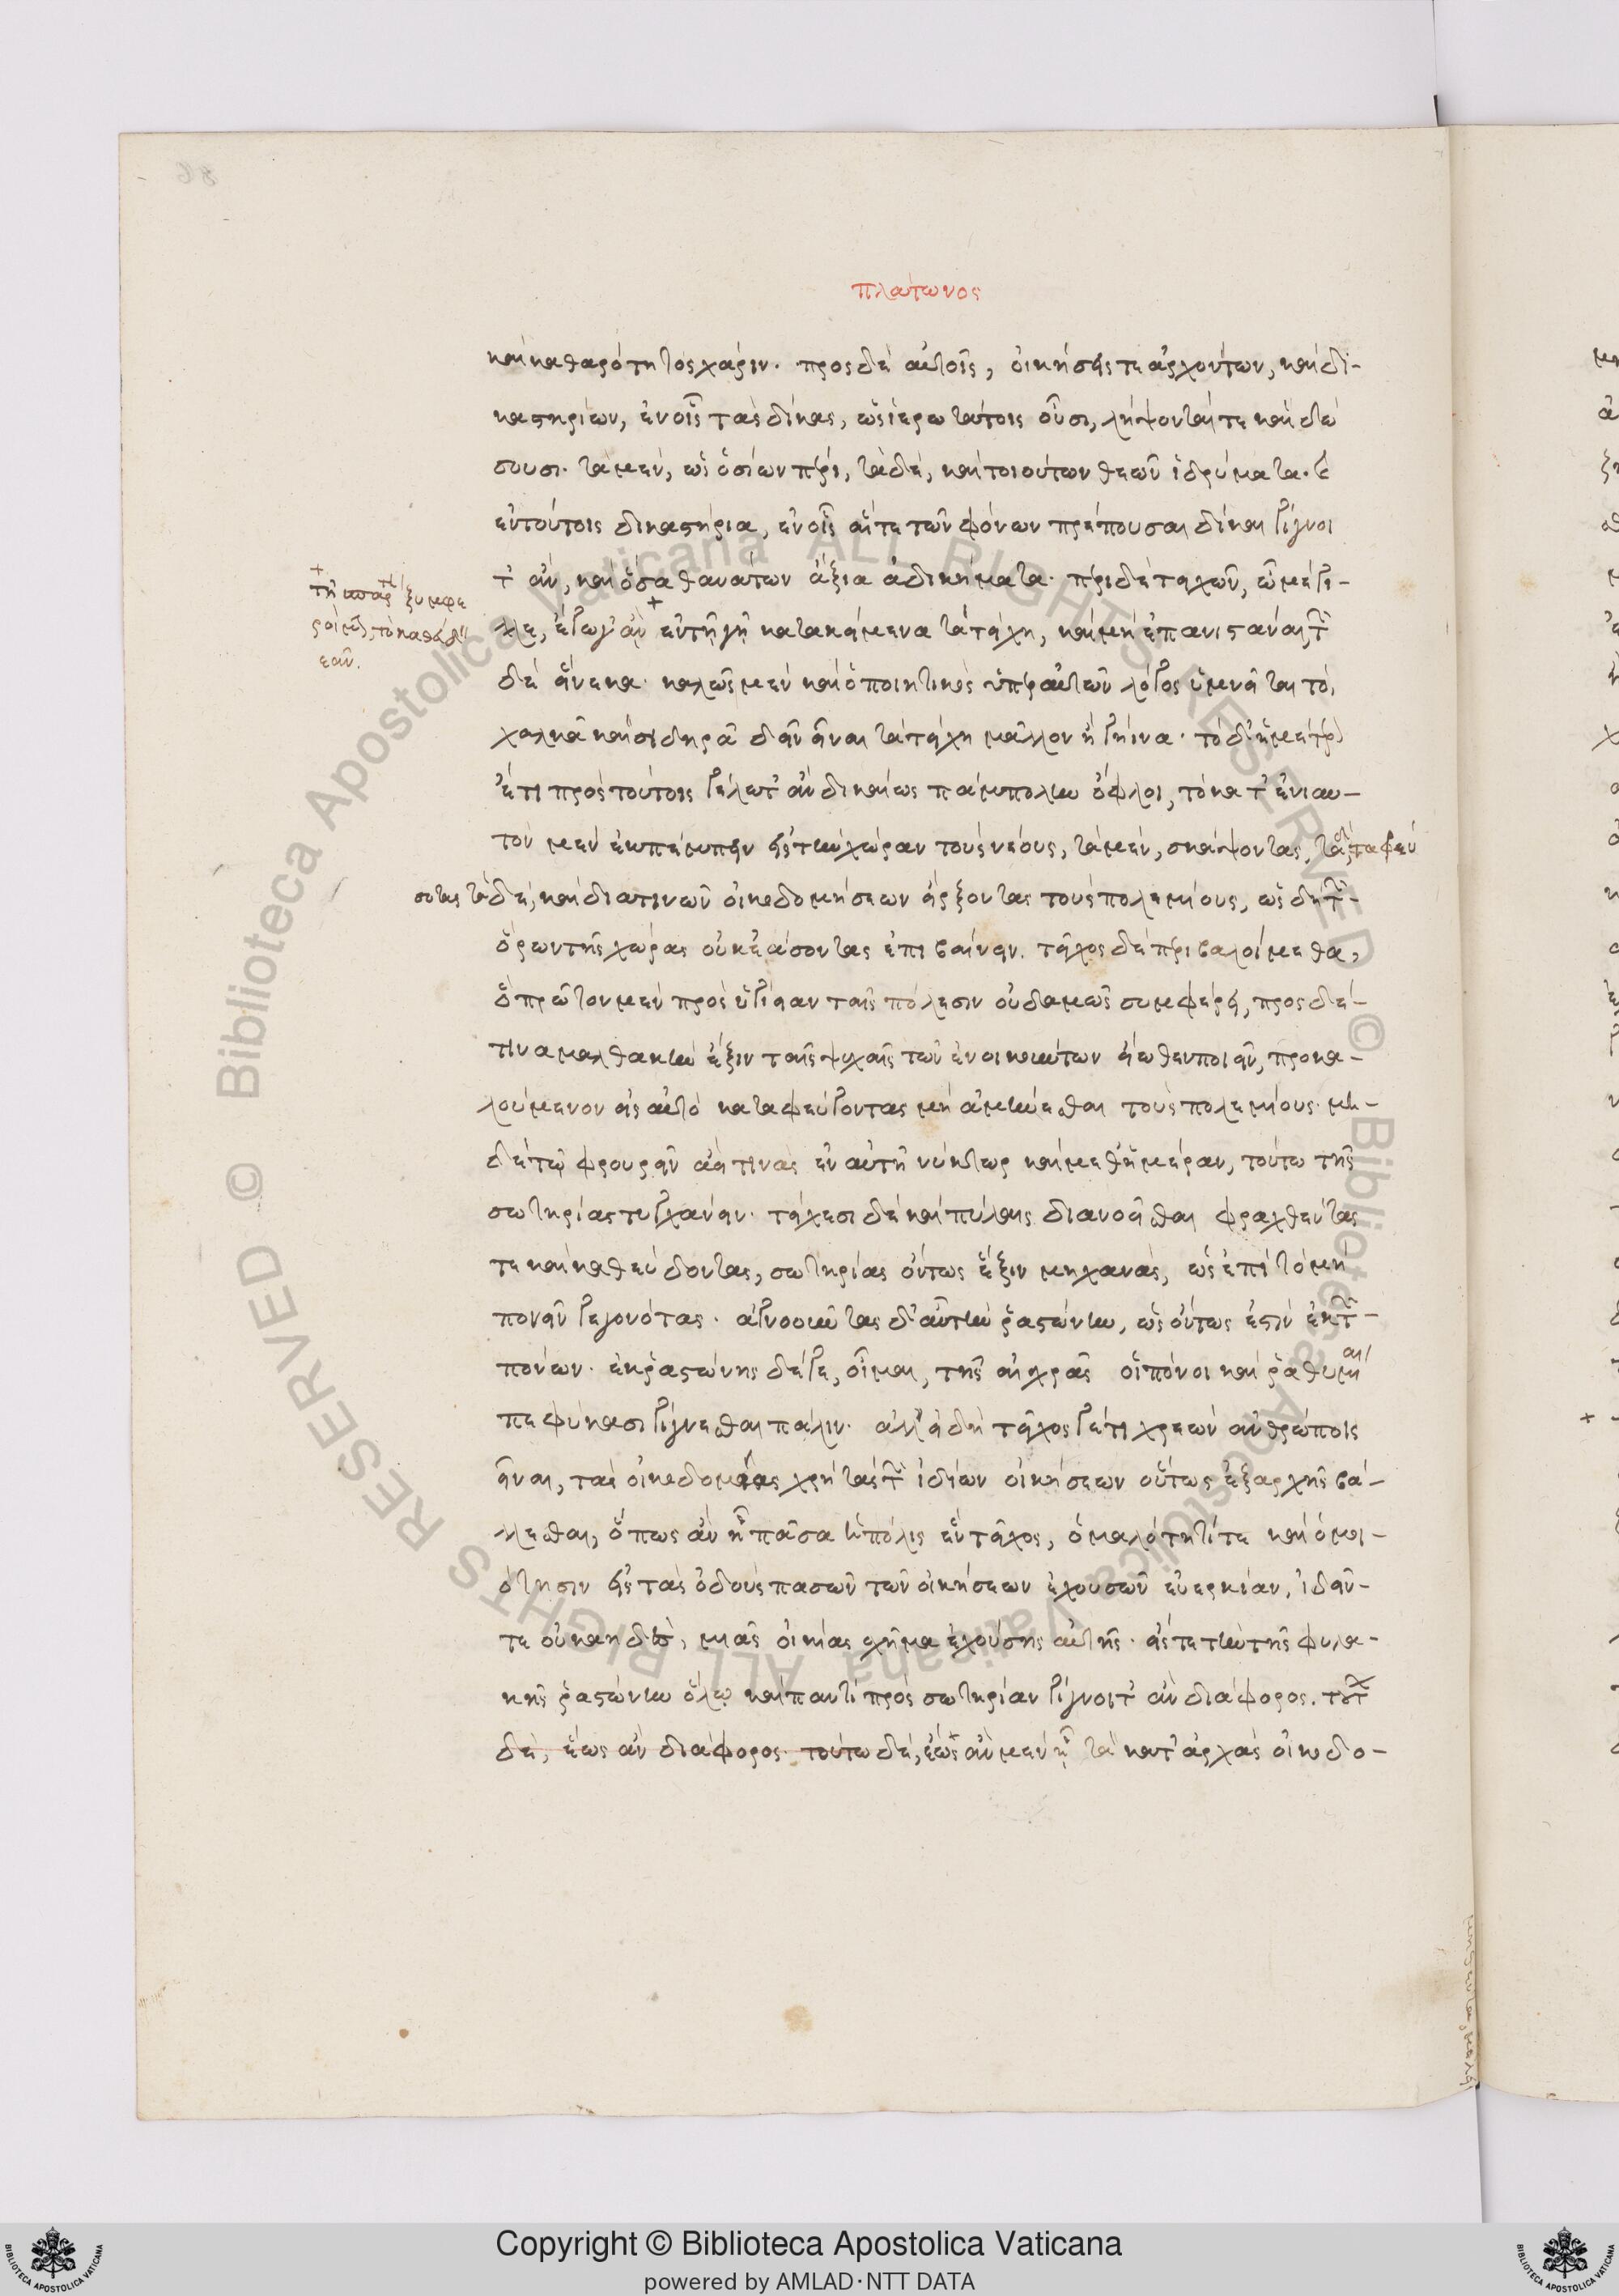 πλάτωνος
καὶ καθαρότητος χάριν. πρὸς δὲ αὐτοῖς, οἰκήσεις τε ἀρχόντων, καὶ δι-
καστηρίων, ἐν οἷς τὰς δίκας, ὡς ἱερωτάτοις οὖσι, λήψονταί τε καὶ δώ
σουσι. τὰ μὲν, ὡς ὁσίων πέρι, τὰ δὲ, καὶ τοιούτων θεῶν ἱδρύματα. καὶ
ἐν τούτοις δικαστήρια, ἐν οἷς αἵ τε τῶν φόνων πρέπουσαι δίκαι γίγνοι
τ' ἂν, καὶ ὅσα θανάτων ἄξια ἀδικήματα. περὶ δὲ τειχῶν, ὦ μέγι-
λλε, ἔγωγ' ἂν ἐν τῇ γῇ κατακείμενα τὰ τείχη, καὶ μὴ ἐπανιστάναι, τῶν
δὲ εἵνεκα. καλῶς μὲν καὶ ὁ ποιητικὸς ὑπὲρ αὐτῶν λόγος ὑμνεῖται τὸ,
χαλκᾶ καὶ σιδηρᾶ δεῖν εἶναι τὰ τείχη μᾶλλον ἢ γήινα. τὸ δ' ἡμέτερον
ἔτι πρὸς τούτοις γέλωτ' ἂν δικαίως πάμπολυν ὄφλοι, τὸ κατ' ἐνιαυ-
τὸν μὲν ἐκπέμπειν εἰς τὴν χώραν τοὺς νέους, τὰ μὲν, σκάψοντας, τὰ δὲ ταφρεύ
σοντας τὰ δὲ, καὶ διά τινων οἰκοδομήσεων εἴρξοντας τοὺς πολεμίους, ὡς δὴ τῶν
ὅρων τῆς χώρας οὐκ ἐάσοντας ἐπιβαίνειν. τεῖχος δὲ περιβαλοίμεθα,
ὃ πρῶτον μὲν πρὸς ὑγίειαν ταῖς πόλεσιν οὐδαμῶς συμφέρει, πρὸς δέ-
τινα μαλθακὴν ἕξιν ταῖς ψυχαῖς τῶν ἐνοικούντων εἴωθεν ποιεῖν, προκα-
λούμενον εἰς αὐτὸ καταφεύγοντας μὴ ἀμύνεσθαι τοὺς πολεμίους. μη-
δὲ τῷ φρουρεῖν ἀεί τινας ἐν αὐτῇ νύκτωρ καὶ μεθ' ἡμέραν, τούτω τῆς
σωτηρίας τυγχάνειν. τείχεσι δὲ καὶ πύλαις διανοεῖσθαι φραχθέντας
τε καὶ καθεύδοντας, σωτηρίας ὄντως ἕξειν μηχανὰς, ὡς ἐπὶ τὸ μὴ
πονεῖν γεγονότας. ἀγνοοῦντας δ' αὖ τὴν ῥαστώνην, ὡς ὄντως ἐστὶν ἐκ τῶν
πόνων. ἐκ ῥαστώνης δέ γε, οἶμαι, τῆς αἰσχρᾶς οἱ πόνοι καὶ ῥαθυμίαι
πεφύκασι γίγνεσθαι πάλιν. ἀλλ' εἰ δὴ τεῖχός γέ τι χρεὼν ἀνθρώποις
εἶναι, τὰς οἰκοδομίας χρὴ τὰς τῶν ἰδίων οἰκήσεων οὕτως ἐξ ἀρχῆς βά-
λλεσθαι, ὅπως ἂν ᾖ πᾶσα ἡ πόλις ἓν τεῖχος, ὁμαλότητί τε καὶ ὁμοι-
ότησιν εἰς τὰς ὁδοὺς πασῶν τῶν οἰκήσεων ἐχουσῶν εὐερκίαν, ἰδεῖν-
τε οὐκ ἀηδὲς, μιᾶς οἰκίας σχῆμα ἐχούσης αὐτῆς. εἴς τε τὴν τῆς φυλα-
κῆς ῥαστώνην ὅλῳ καὶ παντὶ πρὸς σωτηρίαν γίγνοιτ' ἂν διάφορος. τούτων
δὲ, ἕως ἂν διάφορος. τούτω δὲ, ἕως ἂν μὲν ᾖ τὰ κατ' ἀρχὰς οἰκοδο-